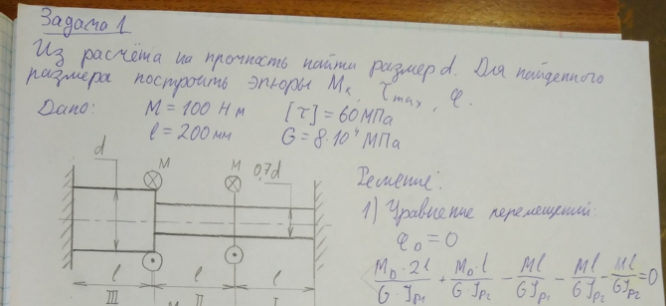 Задача 1
Из расчёта на прочность найти размер d. Для найденного
размера построить эпюры Mк, τmax, φ.
Дано: M = 100 Н м [τ] = 60 МПа
l = 200 мм G = 8·10⁴ МПа
d M M 0,7d
l l l
III II I
Решение:
1) Уравнение перемещений:
φ₀ = 0
M₀·2l/G·Jp₁ + M₀·l/G Jp₂ - Ml/GJp₁ - Ml/GJp₂ - Ml/GJp₂ = 0